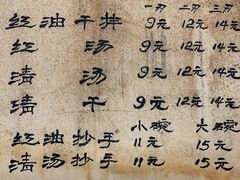 一刃 二刃 三刃
红油干拌 9元 12元 14元
红汤 9元 12元 14元
清汤 9元 12元 14元
清干 9元 12元 14元
小碗 大碗
红油抄手 11元 15元
清汤抄手 11元 15元